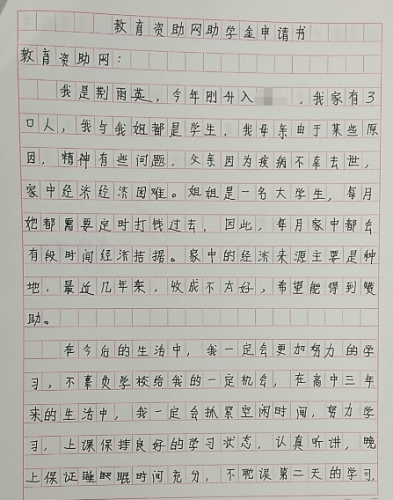 教育资助网助学金申请书
教育资助网：
我是荆雨英，今年刚升入，我家有3
口人，我与我姐都是学生，我母亲由于某些原
因，精神有些问题，父亲因为疾病不幸去世，
家中经济经济困难。姐姐是一名大学生，每月
她都需要定时打钱过去，因此，每月家中都会
有段时间经济拮据。家中的经济来源主要是种
地，最近几年来，收成不太好，希望能得到赞
助。
在今后的生活中，我一定会更加努力的学
习，不辜负学校给我的一定机会，在高中三年
来的生活中，我一定会抓紧空闲时间，努力学
习，上课保持良好的学习状态，认真听讲，晚
上保证睡眠时间充分，不耽误第二天的学习，